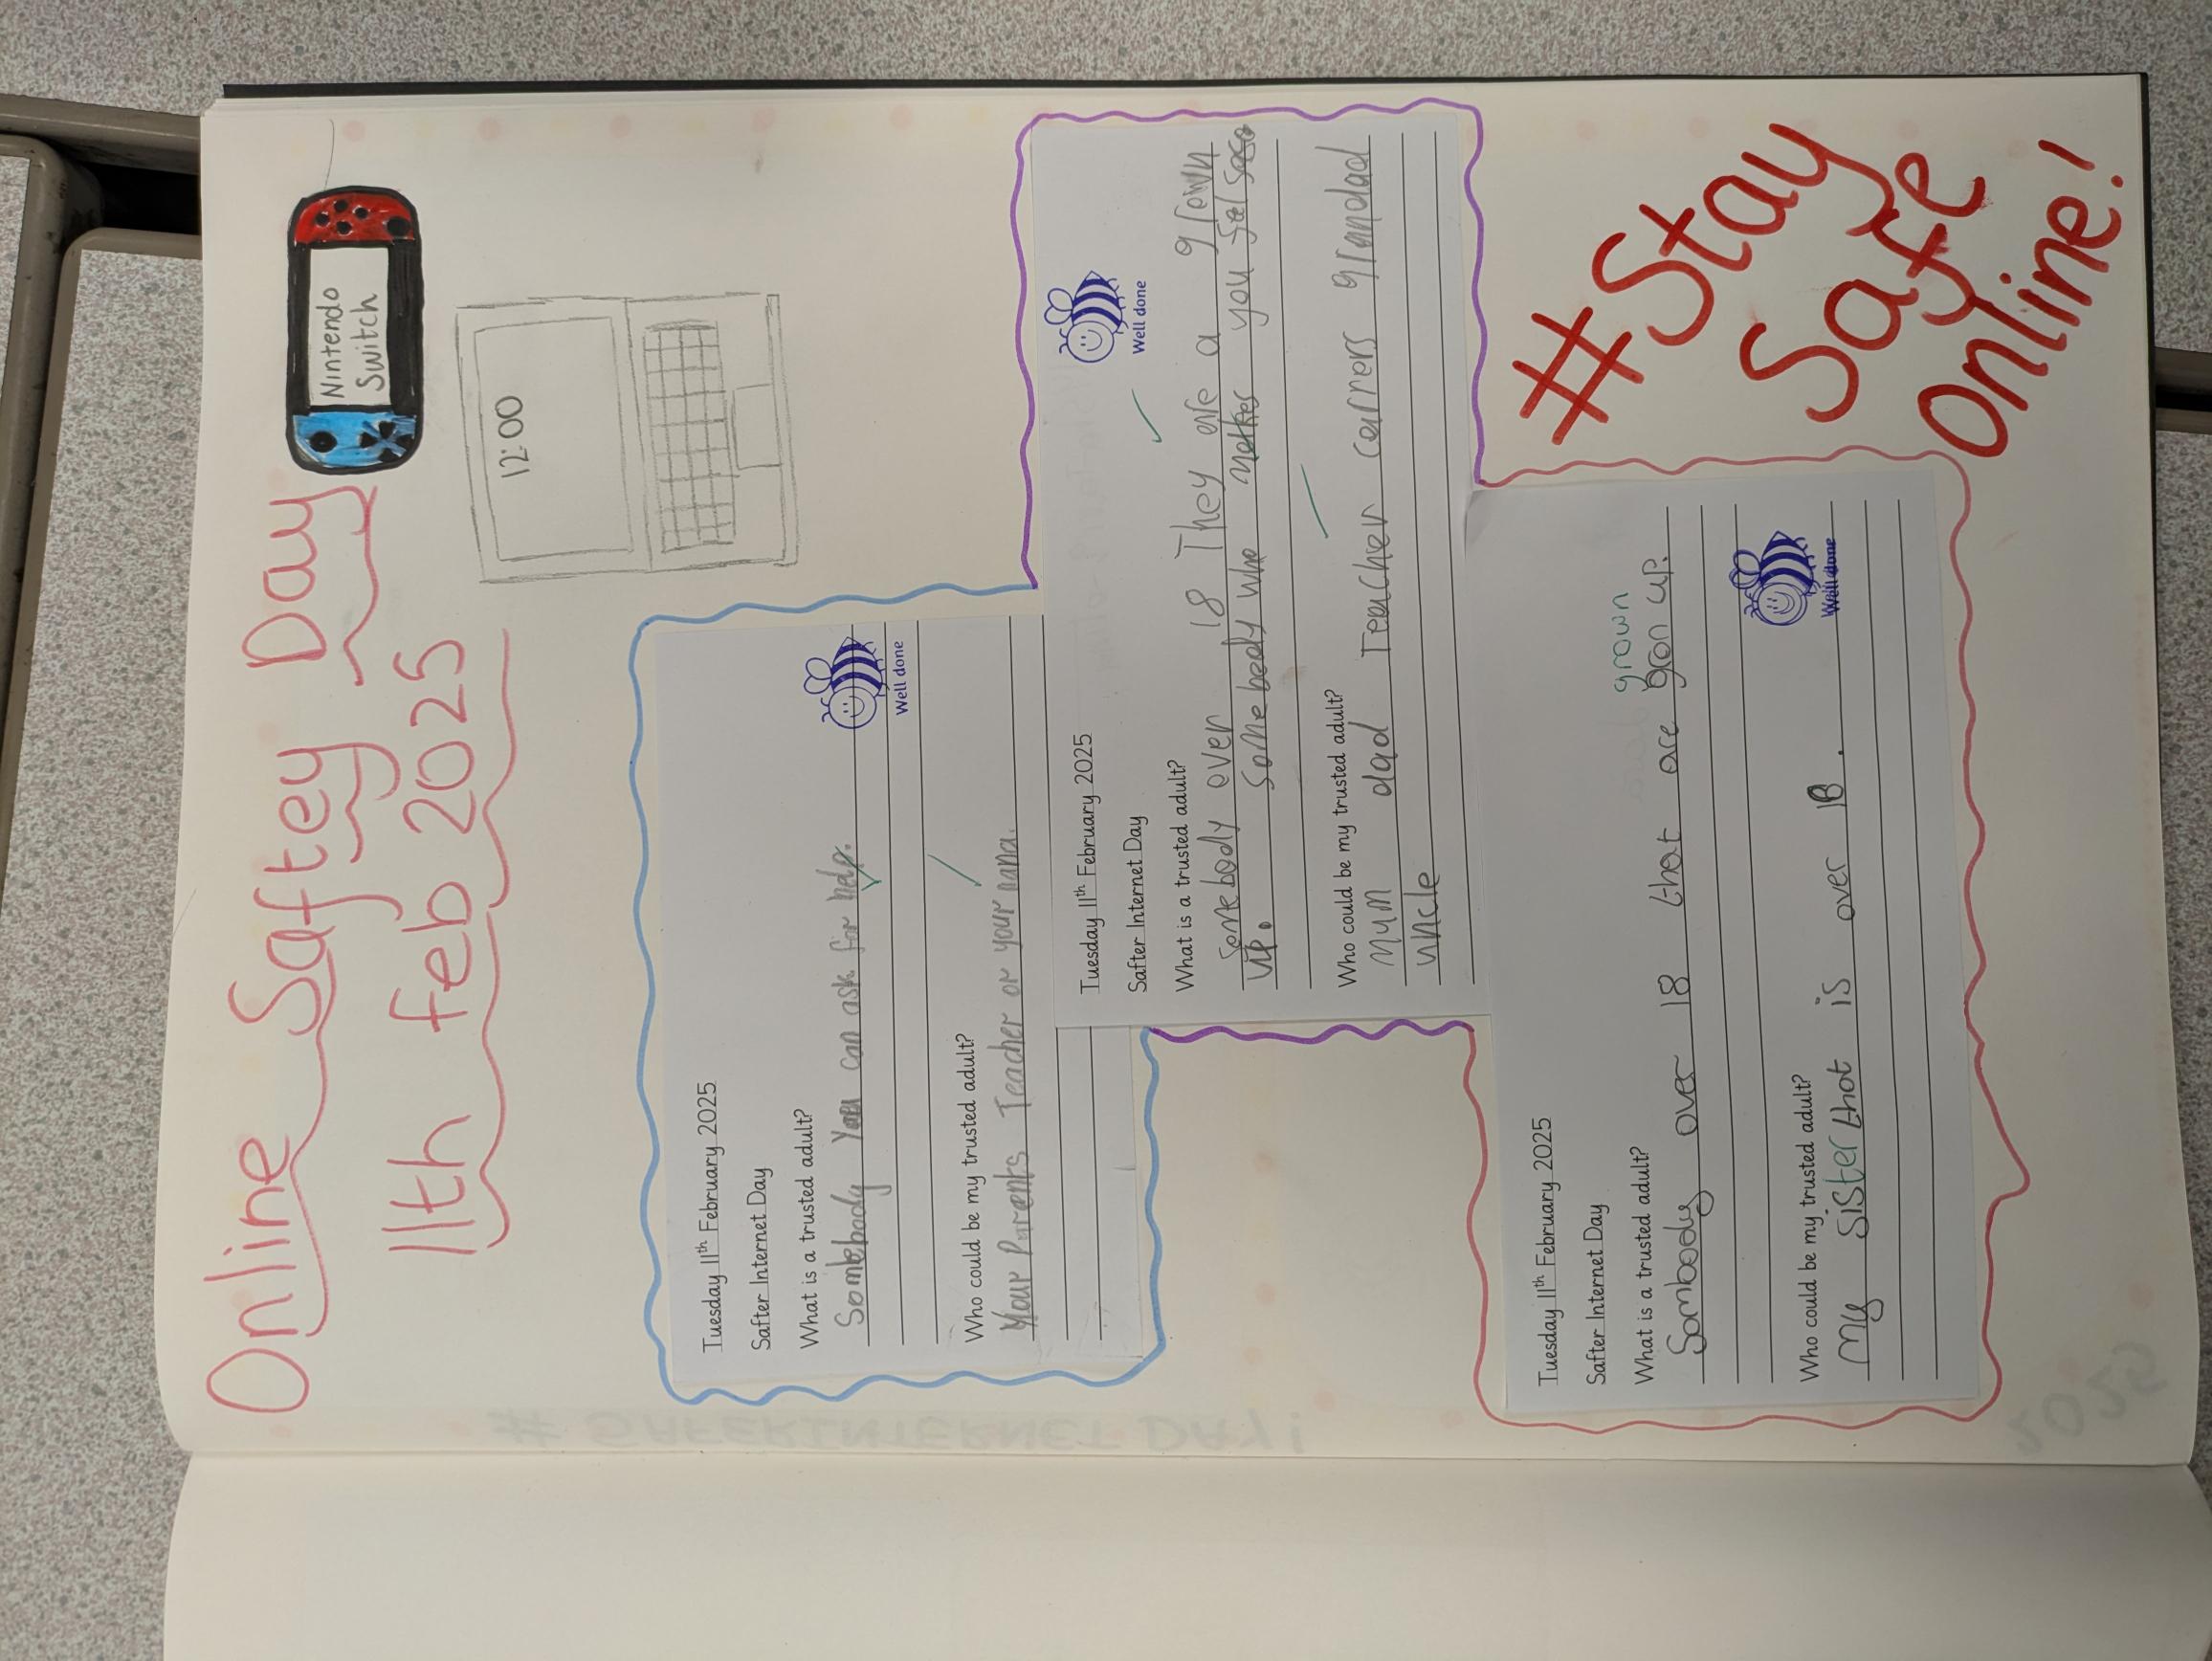 Online Saftey Day
11th feb 2025
Nintendo
Switch
12:00
Tuesday 11th February 2025
Safter Internet Day
What is a trusted adult?
Somebody You can ask for help.
Well done
Who could be my trusted adult?
Your Parents Teacher or your nana.
Tuesday 11th February 2025
Safter Internet Day
Well done
What is a trusted adult?
Somebody over 18 They are a grown
up. Somebody who makes you
Who could be my trusted adult?
Mum dad Teacher carrers grandad
uncle
Tuesday 11th February 2025
Safter Internet Day
What is a trusted adult?
grown
Sombody over 18 that are gron up.
Who could be my trusted adult?
My sister that is over 18.
Well done
#Stay
Safe
Online!
# SAFER INTERNET DAY!
2025